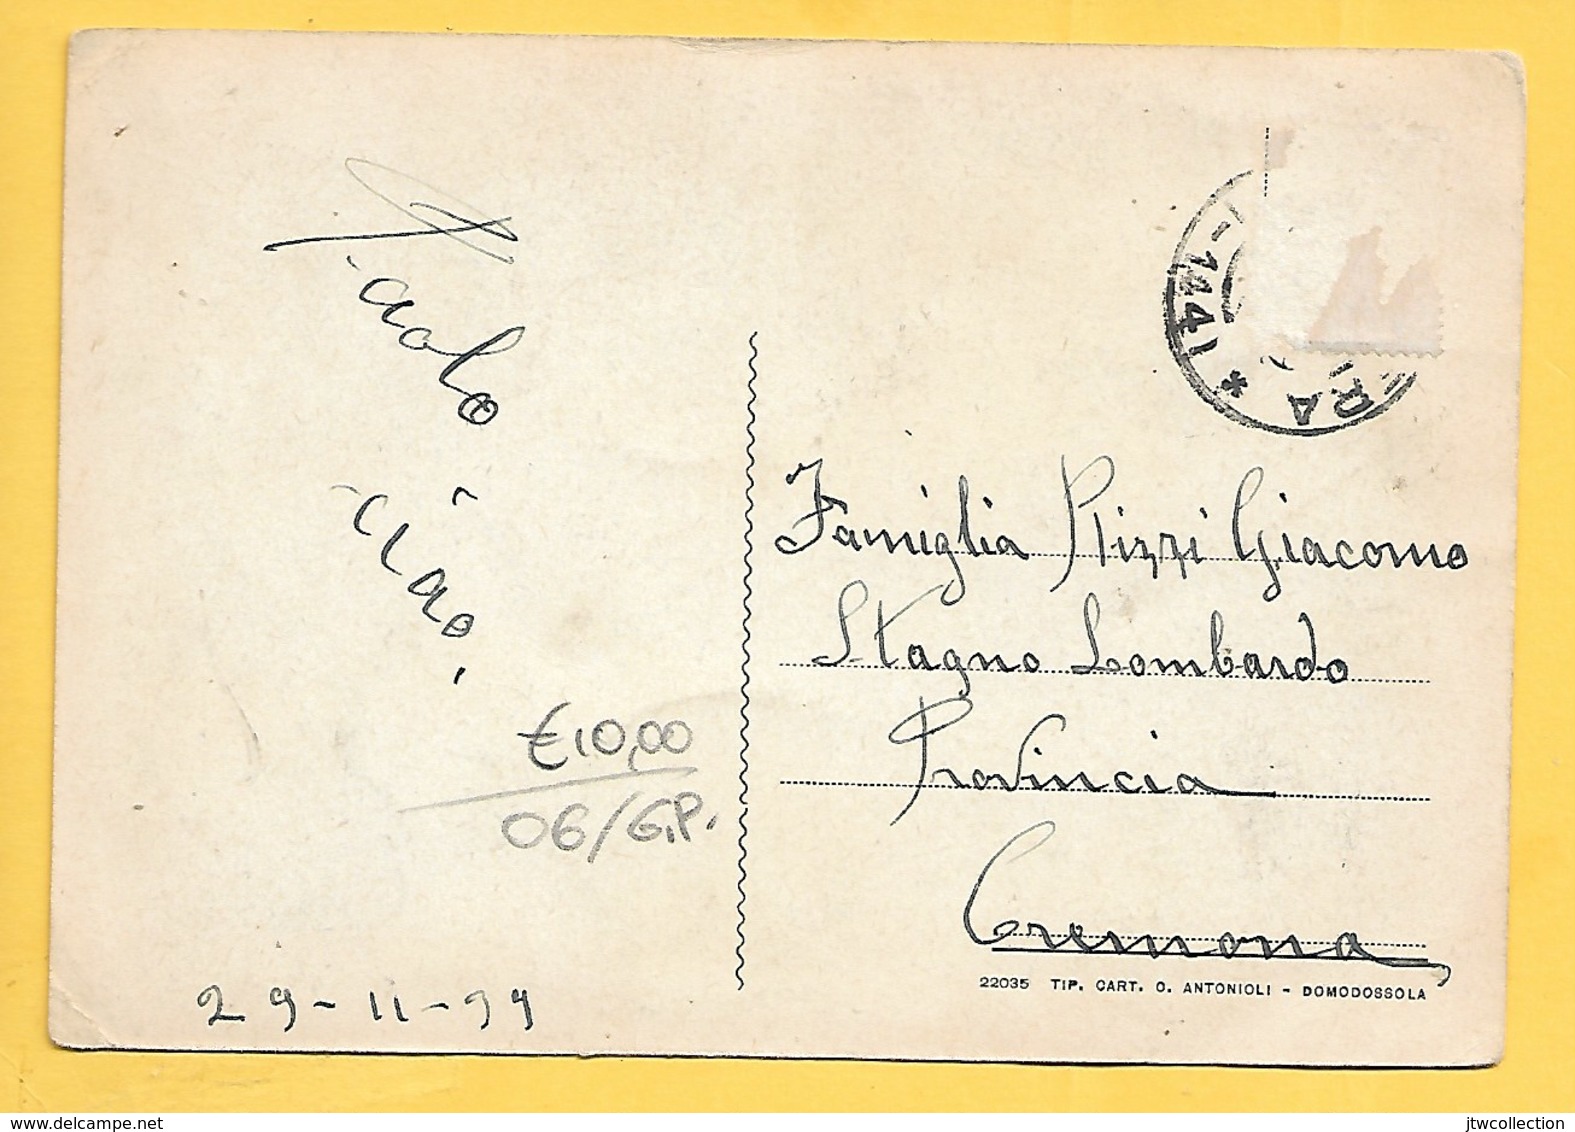 Paolo
ciao.
€10,00
06/G.P.
29-11-
-1441
RA *
Famiglia Rizzi Giacomo
Stagno Lombardo
Provincia
Cremona
22035 TIP. CART. O. ANTONIOLI - DOMODOSSOLA
www.delcampe.net
jtwcollection